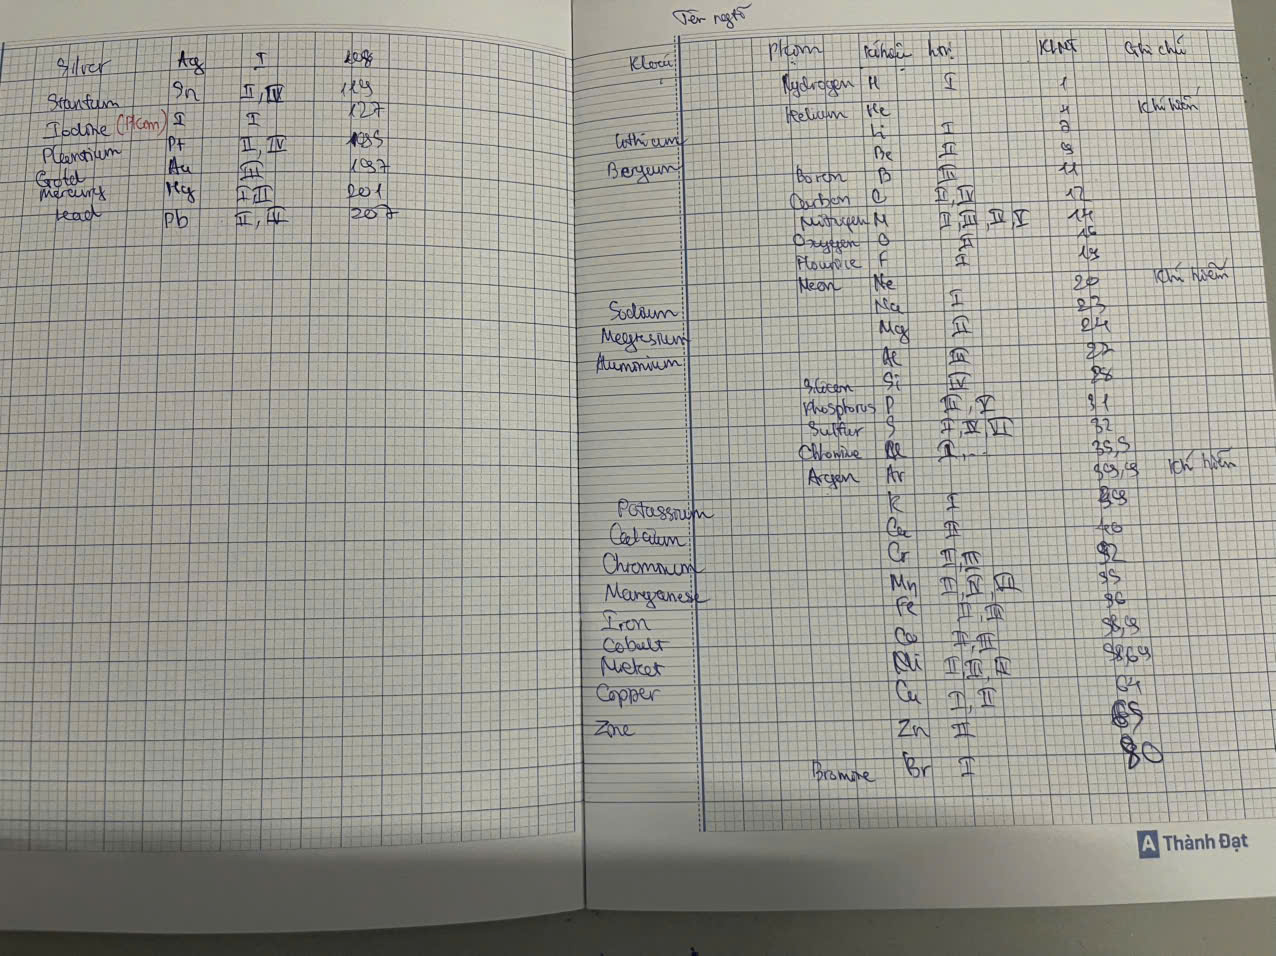 Silver Ag I 108
Stantum Sn II, IV 119
Iodine (Pkim) I I 127
Plantium Pt II, IV 195
Gold Au III 197
Mercury Hg I II 201
Lead Pb II, IV 207
Tên ngtố
Kloại Pkim Kí hiệu htrị KLNT Ghi chú
Hydrogen H I 1
Helium He 4 Khí hiếm
Lithium Li I 7
Beryium Be II 9
Boron B III 11
Carbon C II, IV 12
Nitrogen N II, III, IV, V 14
Oxygen O II 16
Flourice F I 19
Neon Ne 20 Khí hiếm
Sodium Na I 23
Megnesium Mg II 24
Aluminium Al III 27
Silicon Si IV 28
Phosphorus P III, V 31
Sulfur S II, IV, VI 32
Chlorine Cl I,... 35,5
Argen Ar 39,9 Khí hiếm
Potassium K I 39
Calcium Ca II 40
Chromium Cr II, III 52
Manganese Mn II, IV, VII 55
Iron Fe II, III 56
Cobalt Co II, III 58,9
Nickel Ni II, III, IV 58,69
Copper Cu I, II 64
Zinc Zn II 65
Bromine Br I 80
A Thành Đạt